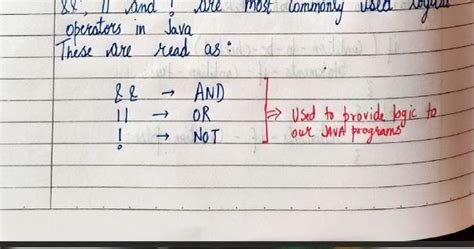 &&, || and ! are most commonly used logical
operators in Java
These are read as:
&& → AND
|| → OR
! → NOT
⇒ Used to provide logic to
our JAVA programs